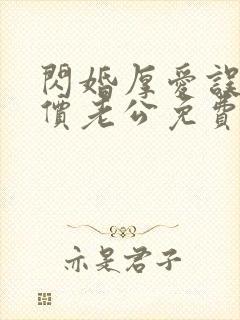 閃婚厚愛誤
價老公免費
亦是君子